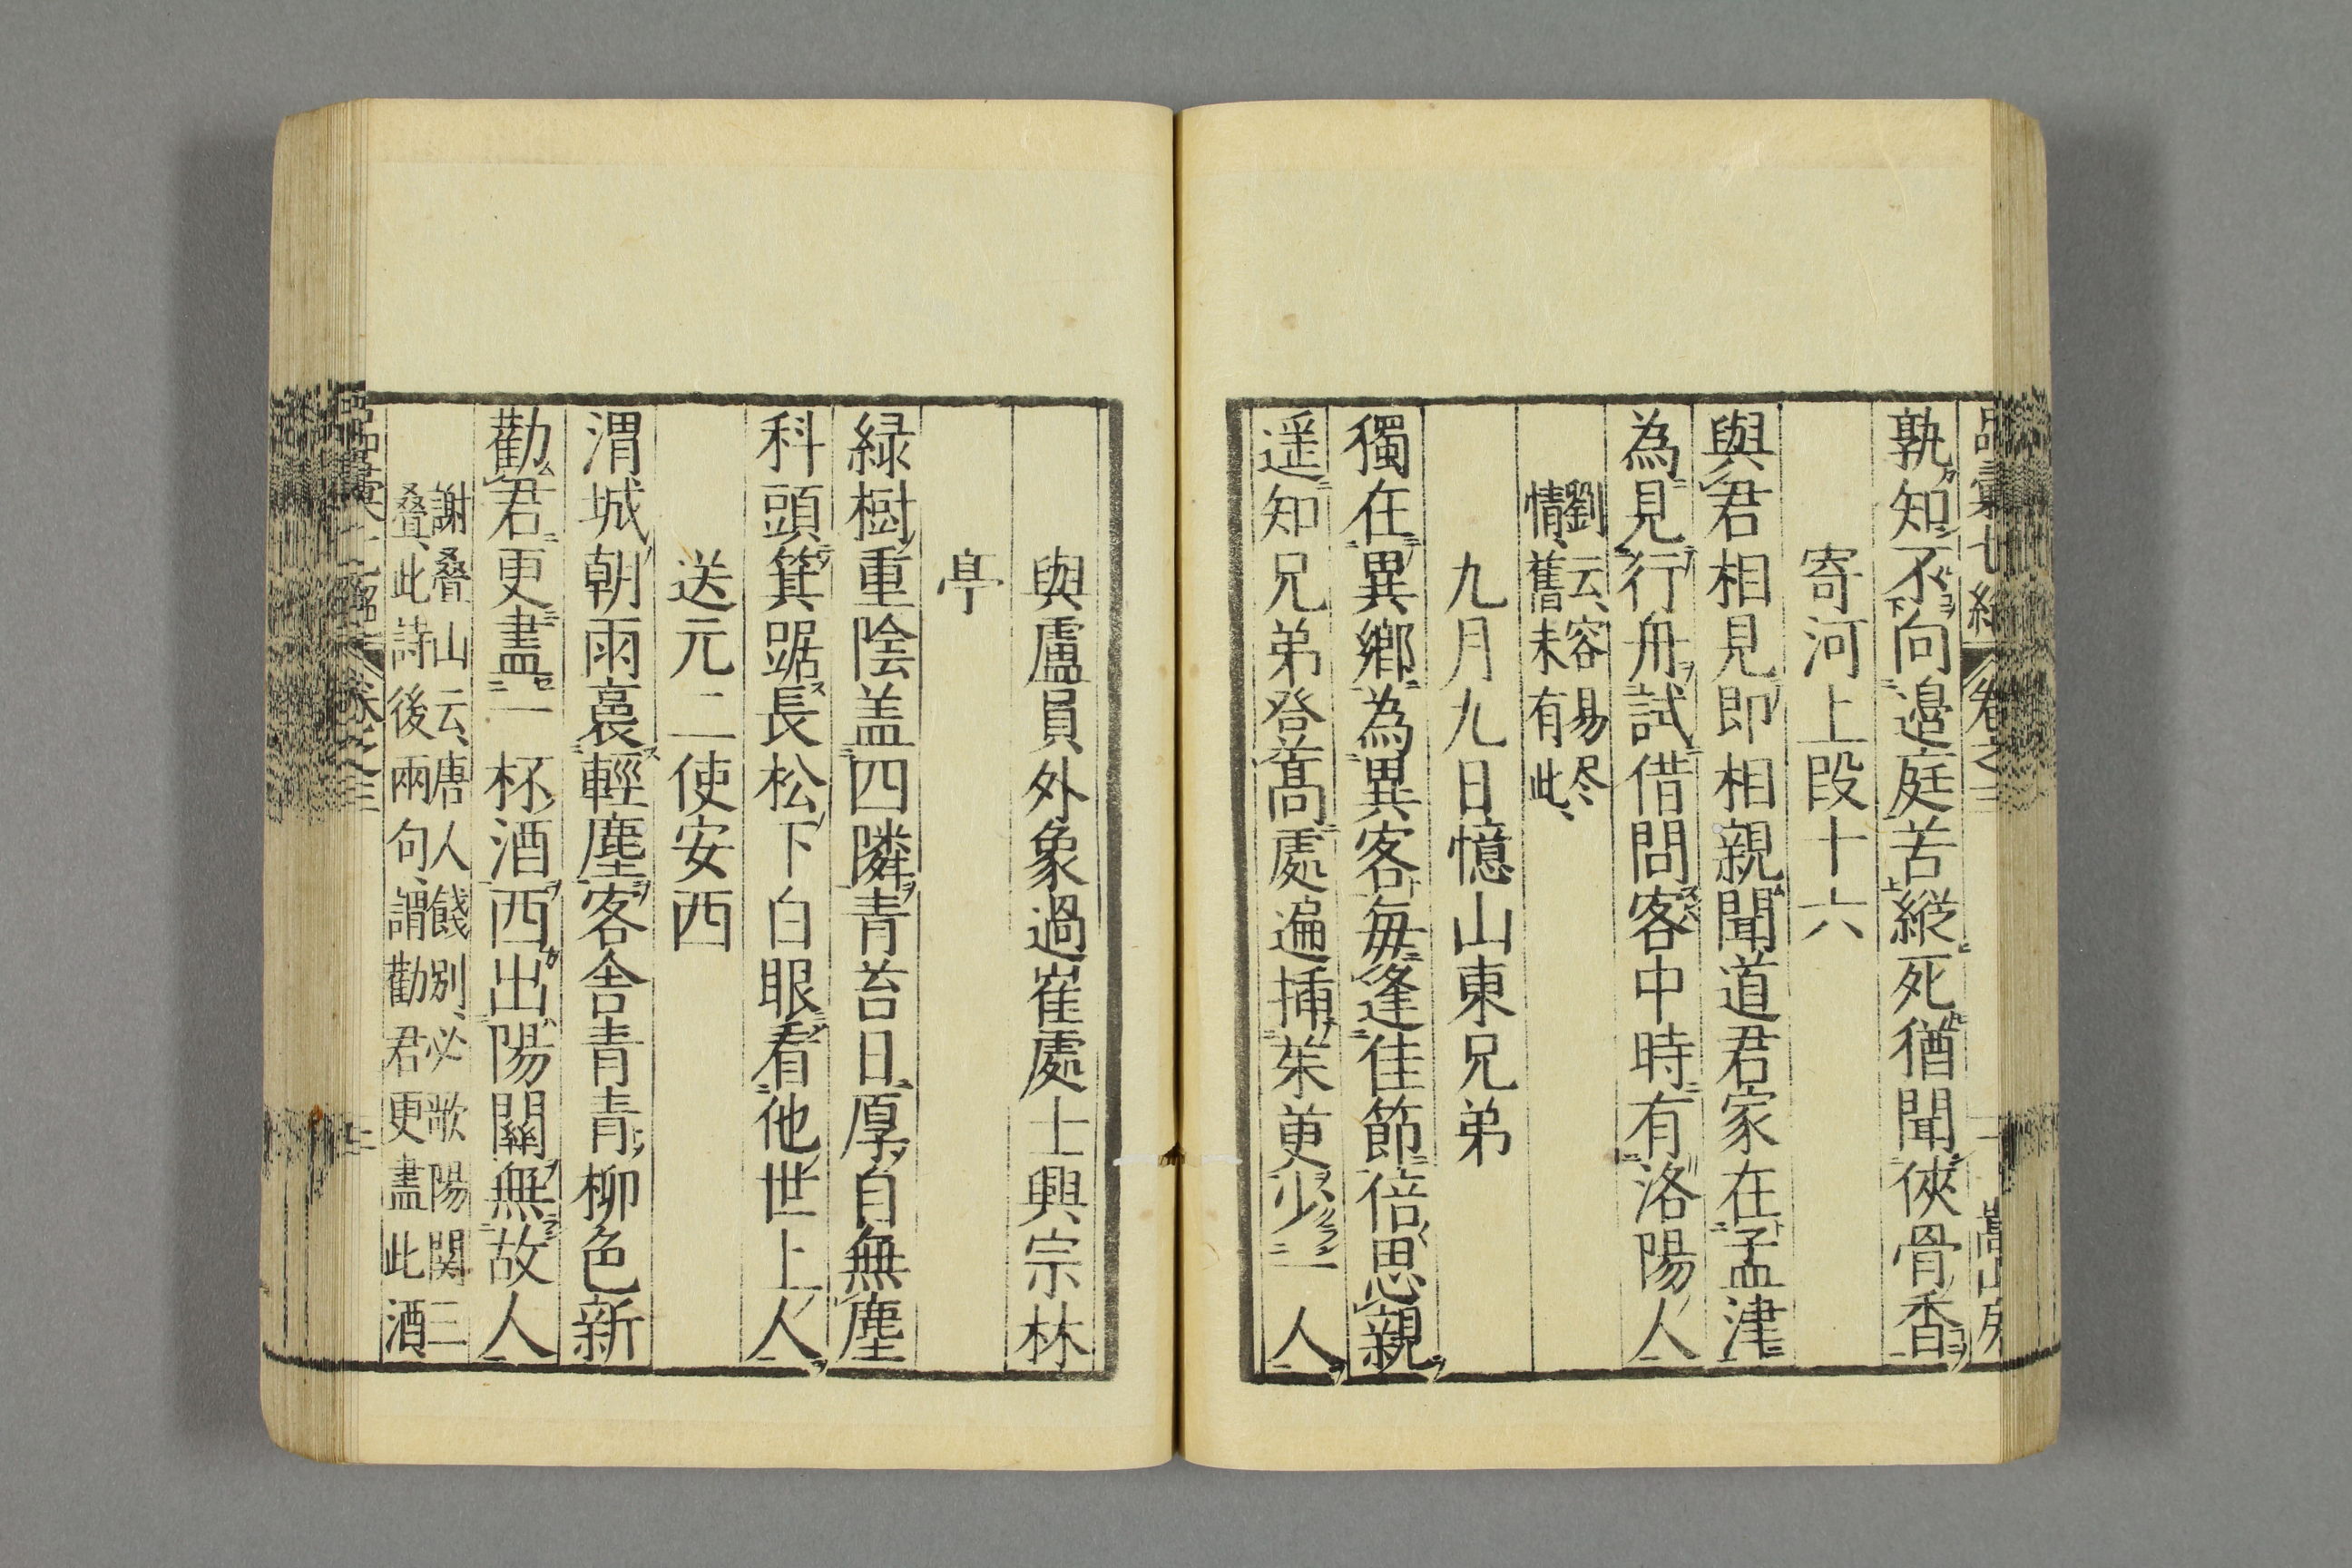 孰知不向邉庭苦縱死猶聞俠骨香
寄河上段十六
與君相見即相親聞道君家在孟津
為見行舟試借問客中時有洛陽人
劉云容易尽
情舊未有此
九月九日憶山東兄弟
獨在異鄉為異客每逢佳節倍思親
遥知兄弟登髙處遍挿茱萸少一人
與盧員外象過崔處士興宗林
亭
緑樹重陰盖四隣青苔日厚自無塵
科頭箕踞長松下白眼看他世上人
送元二使安西
渭城朝雨裛輕塵客舎青青柳色新
勸君更盡一杯酒西出陽關無故人
謝叠山云唐人餞別必歌陽関三
叠此詩後兩句謂勸君更盡此酒